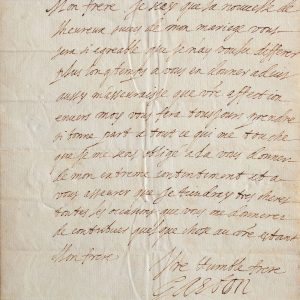 Mon frere Je scay que la nouvelle de
lheureux succes de mon mariage vous
sera si agreable que je nay voulu differer
plus longtemps a vous en donner advis
aussy m'asseurassie que vre affection
envers moy vous fera tousjours prendre
si bonne part a tout ce qui me touche
que je me sens obligé a la vous donner
de mon extreme contentement et a
vous asseurer que je tiendray tres cheres
toutes les occasions que vous me donnerez
de contribuer quelque chose au vre estant
Mon frere
Vre humble frere
Gaston